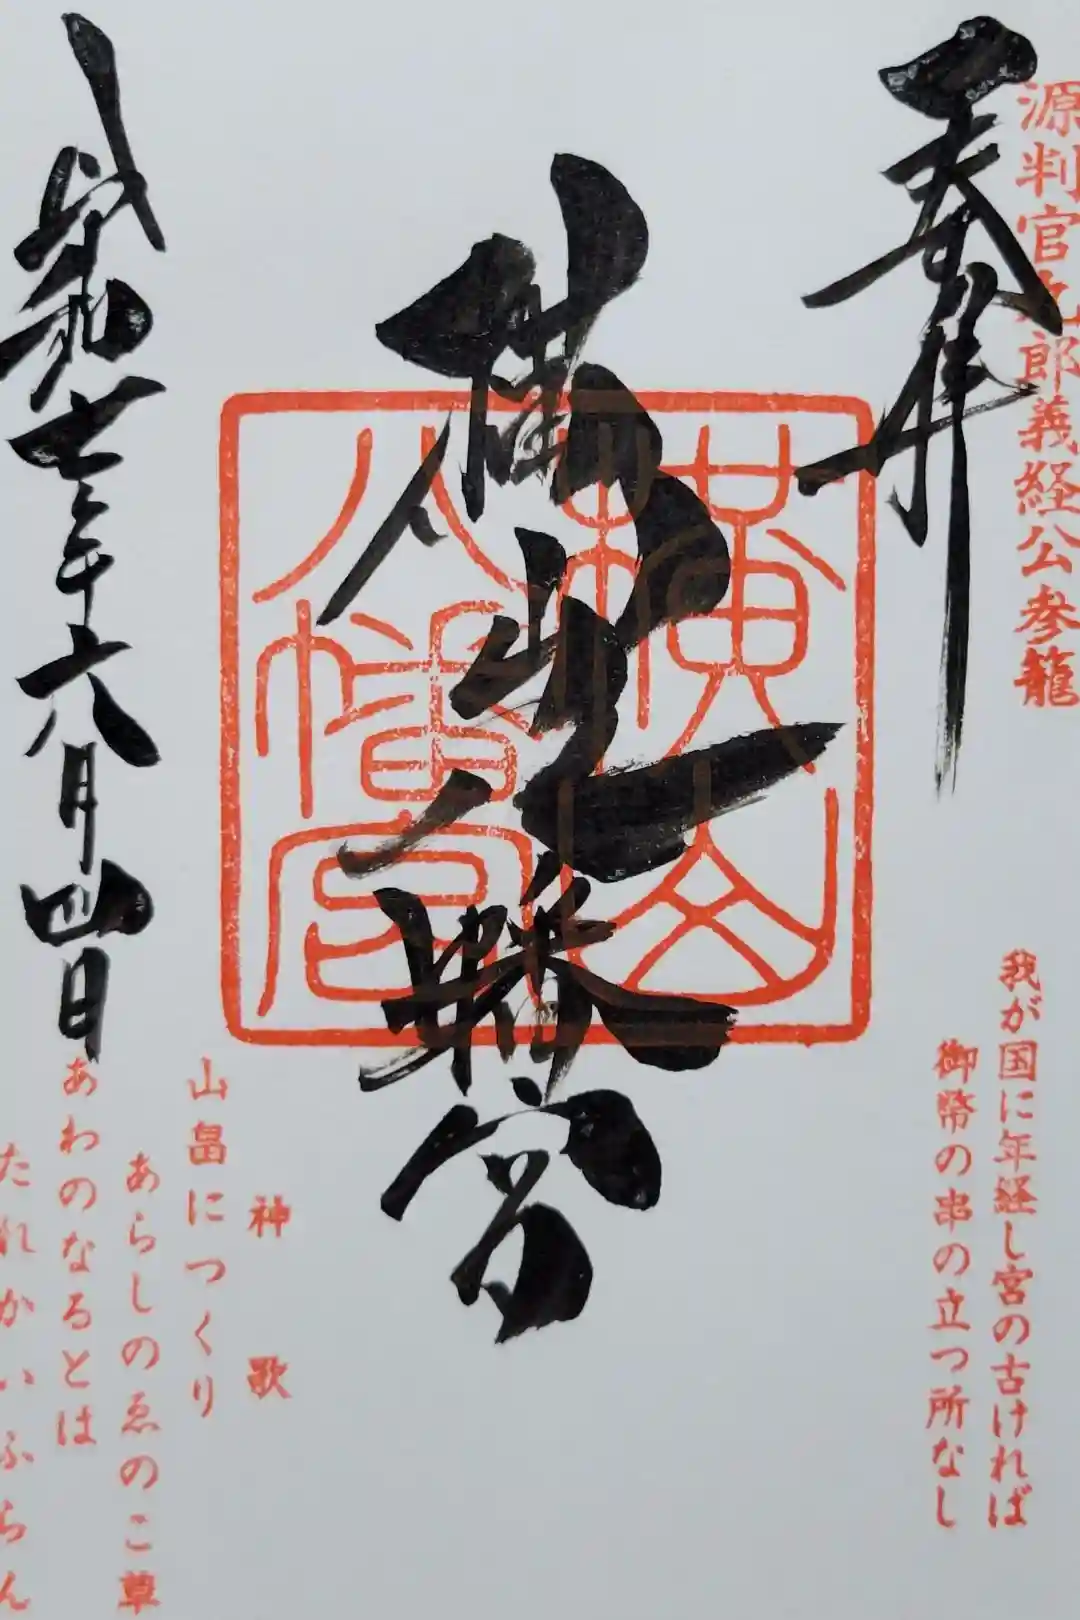 源判官九郎義経公参籠
奉拝
我が国に年経し宮の古ければ
御幣の串の立つ所なし
横山八幡宮
横山八幡宮
神歌
山畠につくり
あらしのゑのこ草
あわのなるとは
たれかいふらん
令和七年六月四日